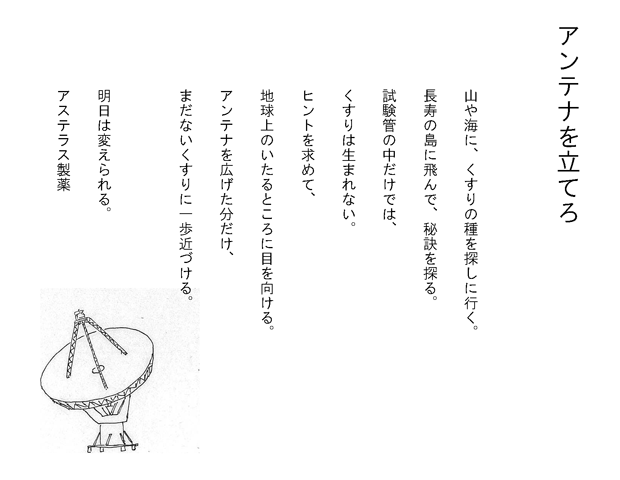 アンテナを立てろ
山や海に、くすりの種を探しに行く。
長寿の島に飛んで、秘訣を探る。
試験管の中だけでは、
くすりは生まれない。
ヒントを求めて、
地球上のいたるところに目を向ける。
アンテナを広げた分だけ、
まだないくすりに一歩近づける。
明日は変えられる。
アステラス製薬